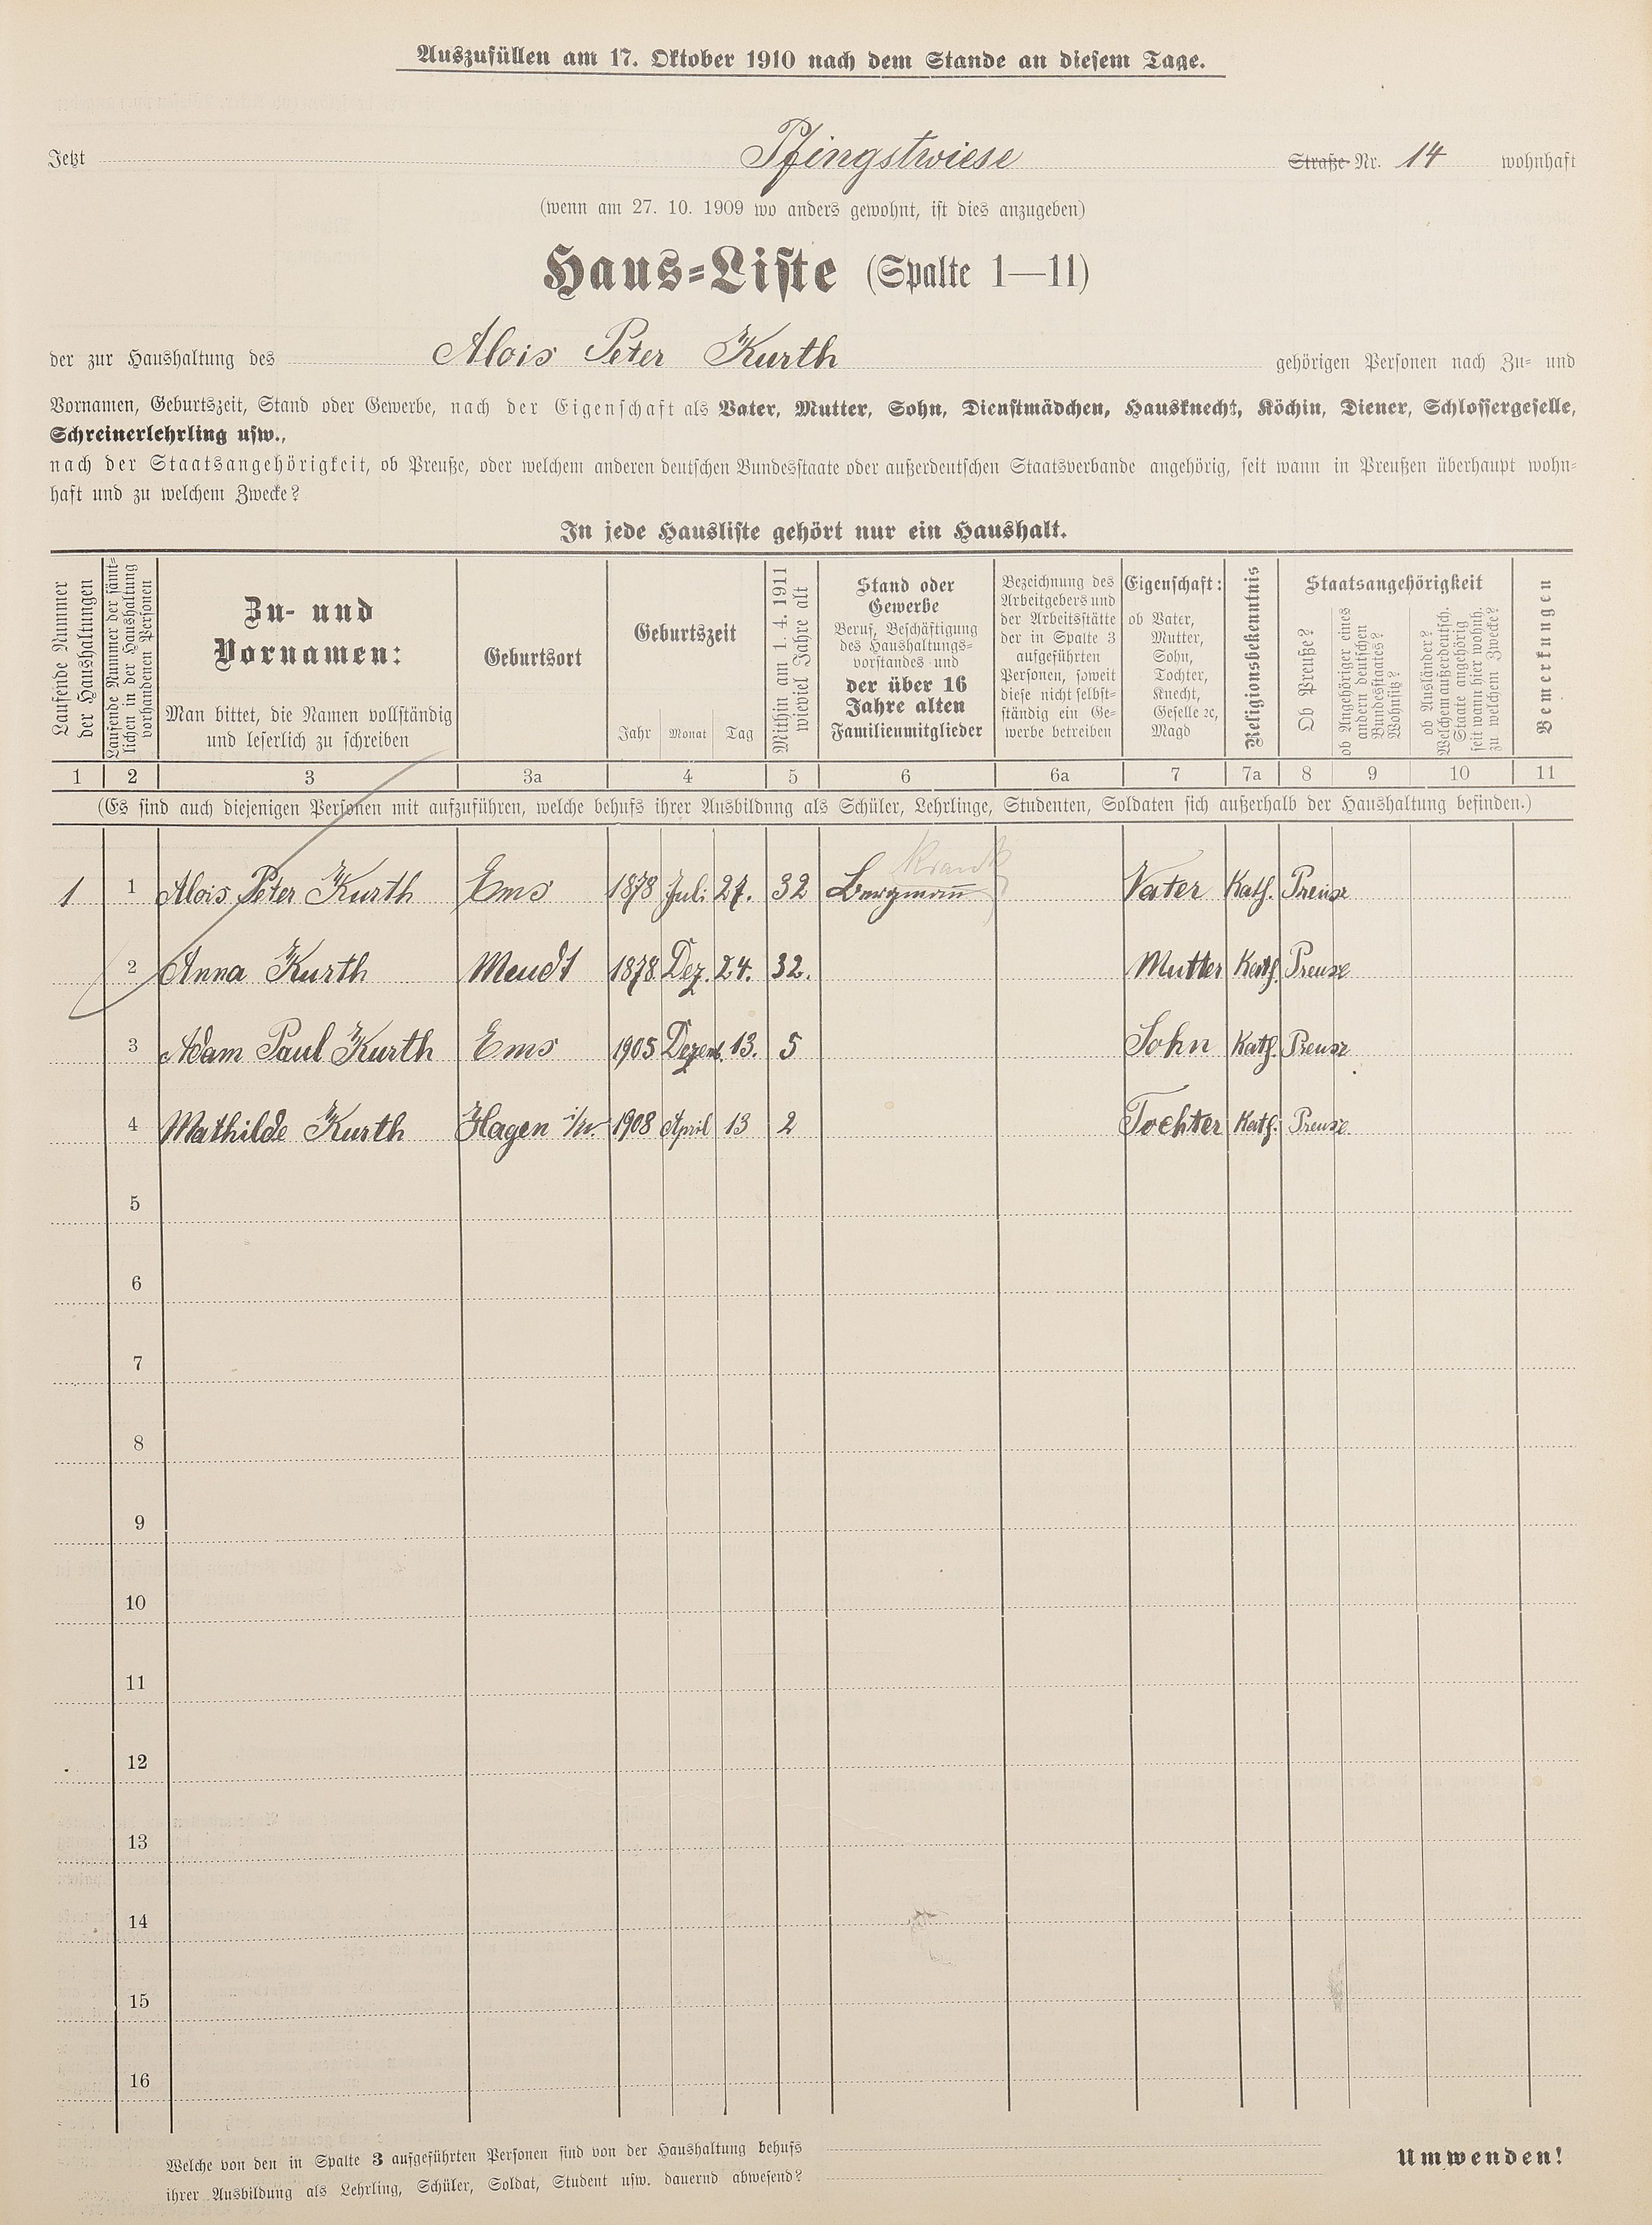 Auszufüllen am 17. Oktober 1910 nach dem Stande an diesem Tage.
Jetzt Pfingstwiese Straße Nr. 14 wohnhaft
(wenn am 27. 10. 1909 wo anders gewohnt, ist dies anzugeben)
Haus-Liste (Spalte 1—11)
der zur Haushaltung des Alois Peter Kurth gehörigen Personen nach Zu- und
Vornamen, Geburtszeit, Stand oder Gewerbe, nach der Eigenschaft als Vater, Mutter, Sohn, Dienstmädchen, Hausknecht, Köchin, Diener, Schlossergeselle,
Schreinerlehrling usw.,
nach der Staatsangehörigkeit, ob Preuße, oder welchem anderen deutschen Bundesstaate oder außerdeutschen Staatsverbande angehörig, seit wann in Preußen überhaupt wohn-
haft und zu welchem Zwecke?
In jede Hausliste gehört nur ein Haushalt.
Laufende Nummer
der Haushaltungen
Laufende Nummer der sämt-
lichen in der Haushaltung
vorhandenen Personen
Zu- und
Vornamen:
Man bittet, die Namen vollständig
und leserlich zu schreiben
Geburtsort
Geburtszeit
Jahr Monat Tag
Mithin am 1. 4. 1911
wieviel Jahre alt
Stand oder
Gewerbe
Beruf, Beschäftigung
des Haushaltungs-
vorstandes und
der über 16
Jahre alten
Familienmitglieder
Bezeichnung des
Arbeitgebers und
der Arbeitsstätte
der in Spalte 3
aufgeführten
Personen, soweit
diese nicht selbst-
ständig ein Ge-
werbe betreiben
Eigenschaft:
ob Vater,
Mutter,
Sohn,
Tochter,
Knecht,
Geselle ꝛc,
Magd
Religionsbekenntnis
Staatsangehörigkeit
Ob Preuße?
ob Angehöriger eines
andern deutschen
Bundesstaates?
Wohnsitz?
ob Ausländer?
Welchem außerdeutsch.
Staate angehörig
seit wann hier wohnh.
zu welchem Zwecke?
Bemerkungen
1 2 3 3a 4 5 6 6a 7 7a 8 9 10 11
(Es sind auch diejenigen Personen mit aufzuführen, welche behufs ihrer Ausbildung als Schüler, Lehrlinge, Studenten, Soldaten sich außerhalb der Haushaltung befinden.)
Krank
1 1 Alois Peter Kurth Ems 1878 Juli 27. 32 Bergmann Vater Kath. Preuse
2 Anna Kurth Meudt 1878 Dez. 24. 32. Mutter Kath. Preuse
3 Adam Paul Kurth Ems 1905 Dezem. 13. 5 Sohn Kath. Preuse
4 Mathilde Kurth Hagen i/w. 1908 April 13 2 Tochter Kath. Preuse
5
6
7
8
9
10
11
12
13
14
15
16
Welche von den in Spalte 3 aufgeführten Personen sind von der Haushaltung behufs
ihrer Ausbildung als Lehrling, Schüler, Soldat, Student usw. dauernd abwesend?
Umwenden!